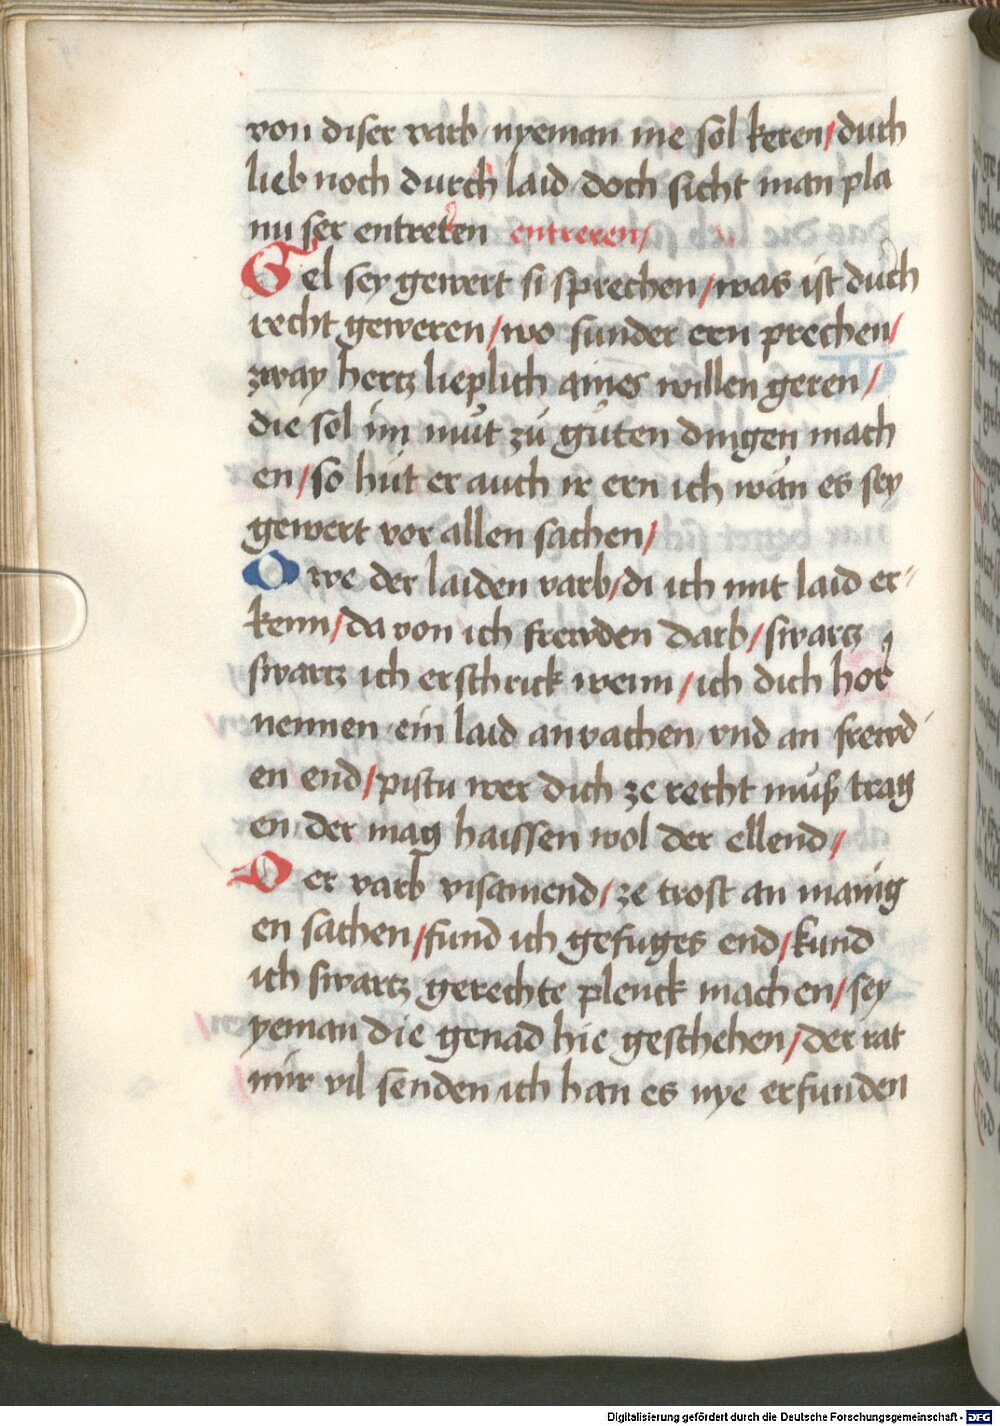 von diser varb nyeman me sol keren / durch
lieb noch durch laid doch sicht man pla
nu ser entreten entreren /
Gel sey gewert si sprechen / was ist durch
recht geweren / wo sunder ern prechen /
zway hertz lieplich aines willen geren /
die sol im mut zu guten dingen mach
en / so hut er auch ir ern ich wän es sey
gewert vor allen sachen /
Owe der laiden varb / di ich mit laid er-
kenn / da von ich frewden darb / swartz
swartz ich erschrick wenn / ich dich hor
nennen ein laid anvachen vnd an frewd
en end / pistu wer dich ze recht muß trag
en der mag haissen wol der ellend /
Der varb visamend / ze trost an manig
en sachen / fund ich gefuges end / kund
ich swartz gerechte plenck machen / sey
yeman die genad hie geschehen / der rat
mir vil senden ich han es nye erfunden
Digitalisierung gefördert durch die Deutsche Forschungsgemeinschaft - DFG